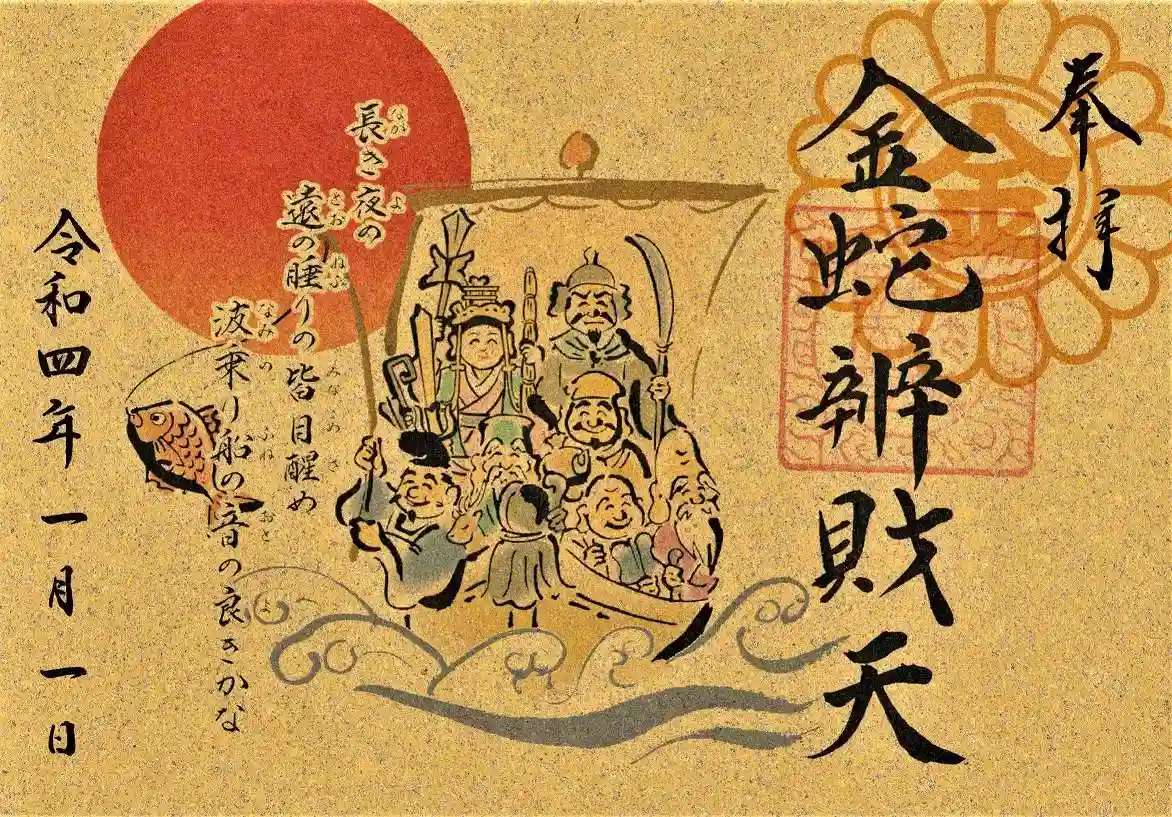 奉拝
金蛇辨財天
長き夜の
遠の睡りの皆目醒め
波乗り船の音の良きかな
令和四年一月一日